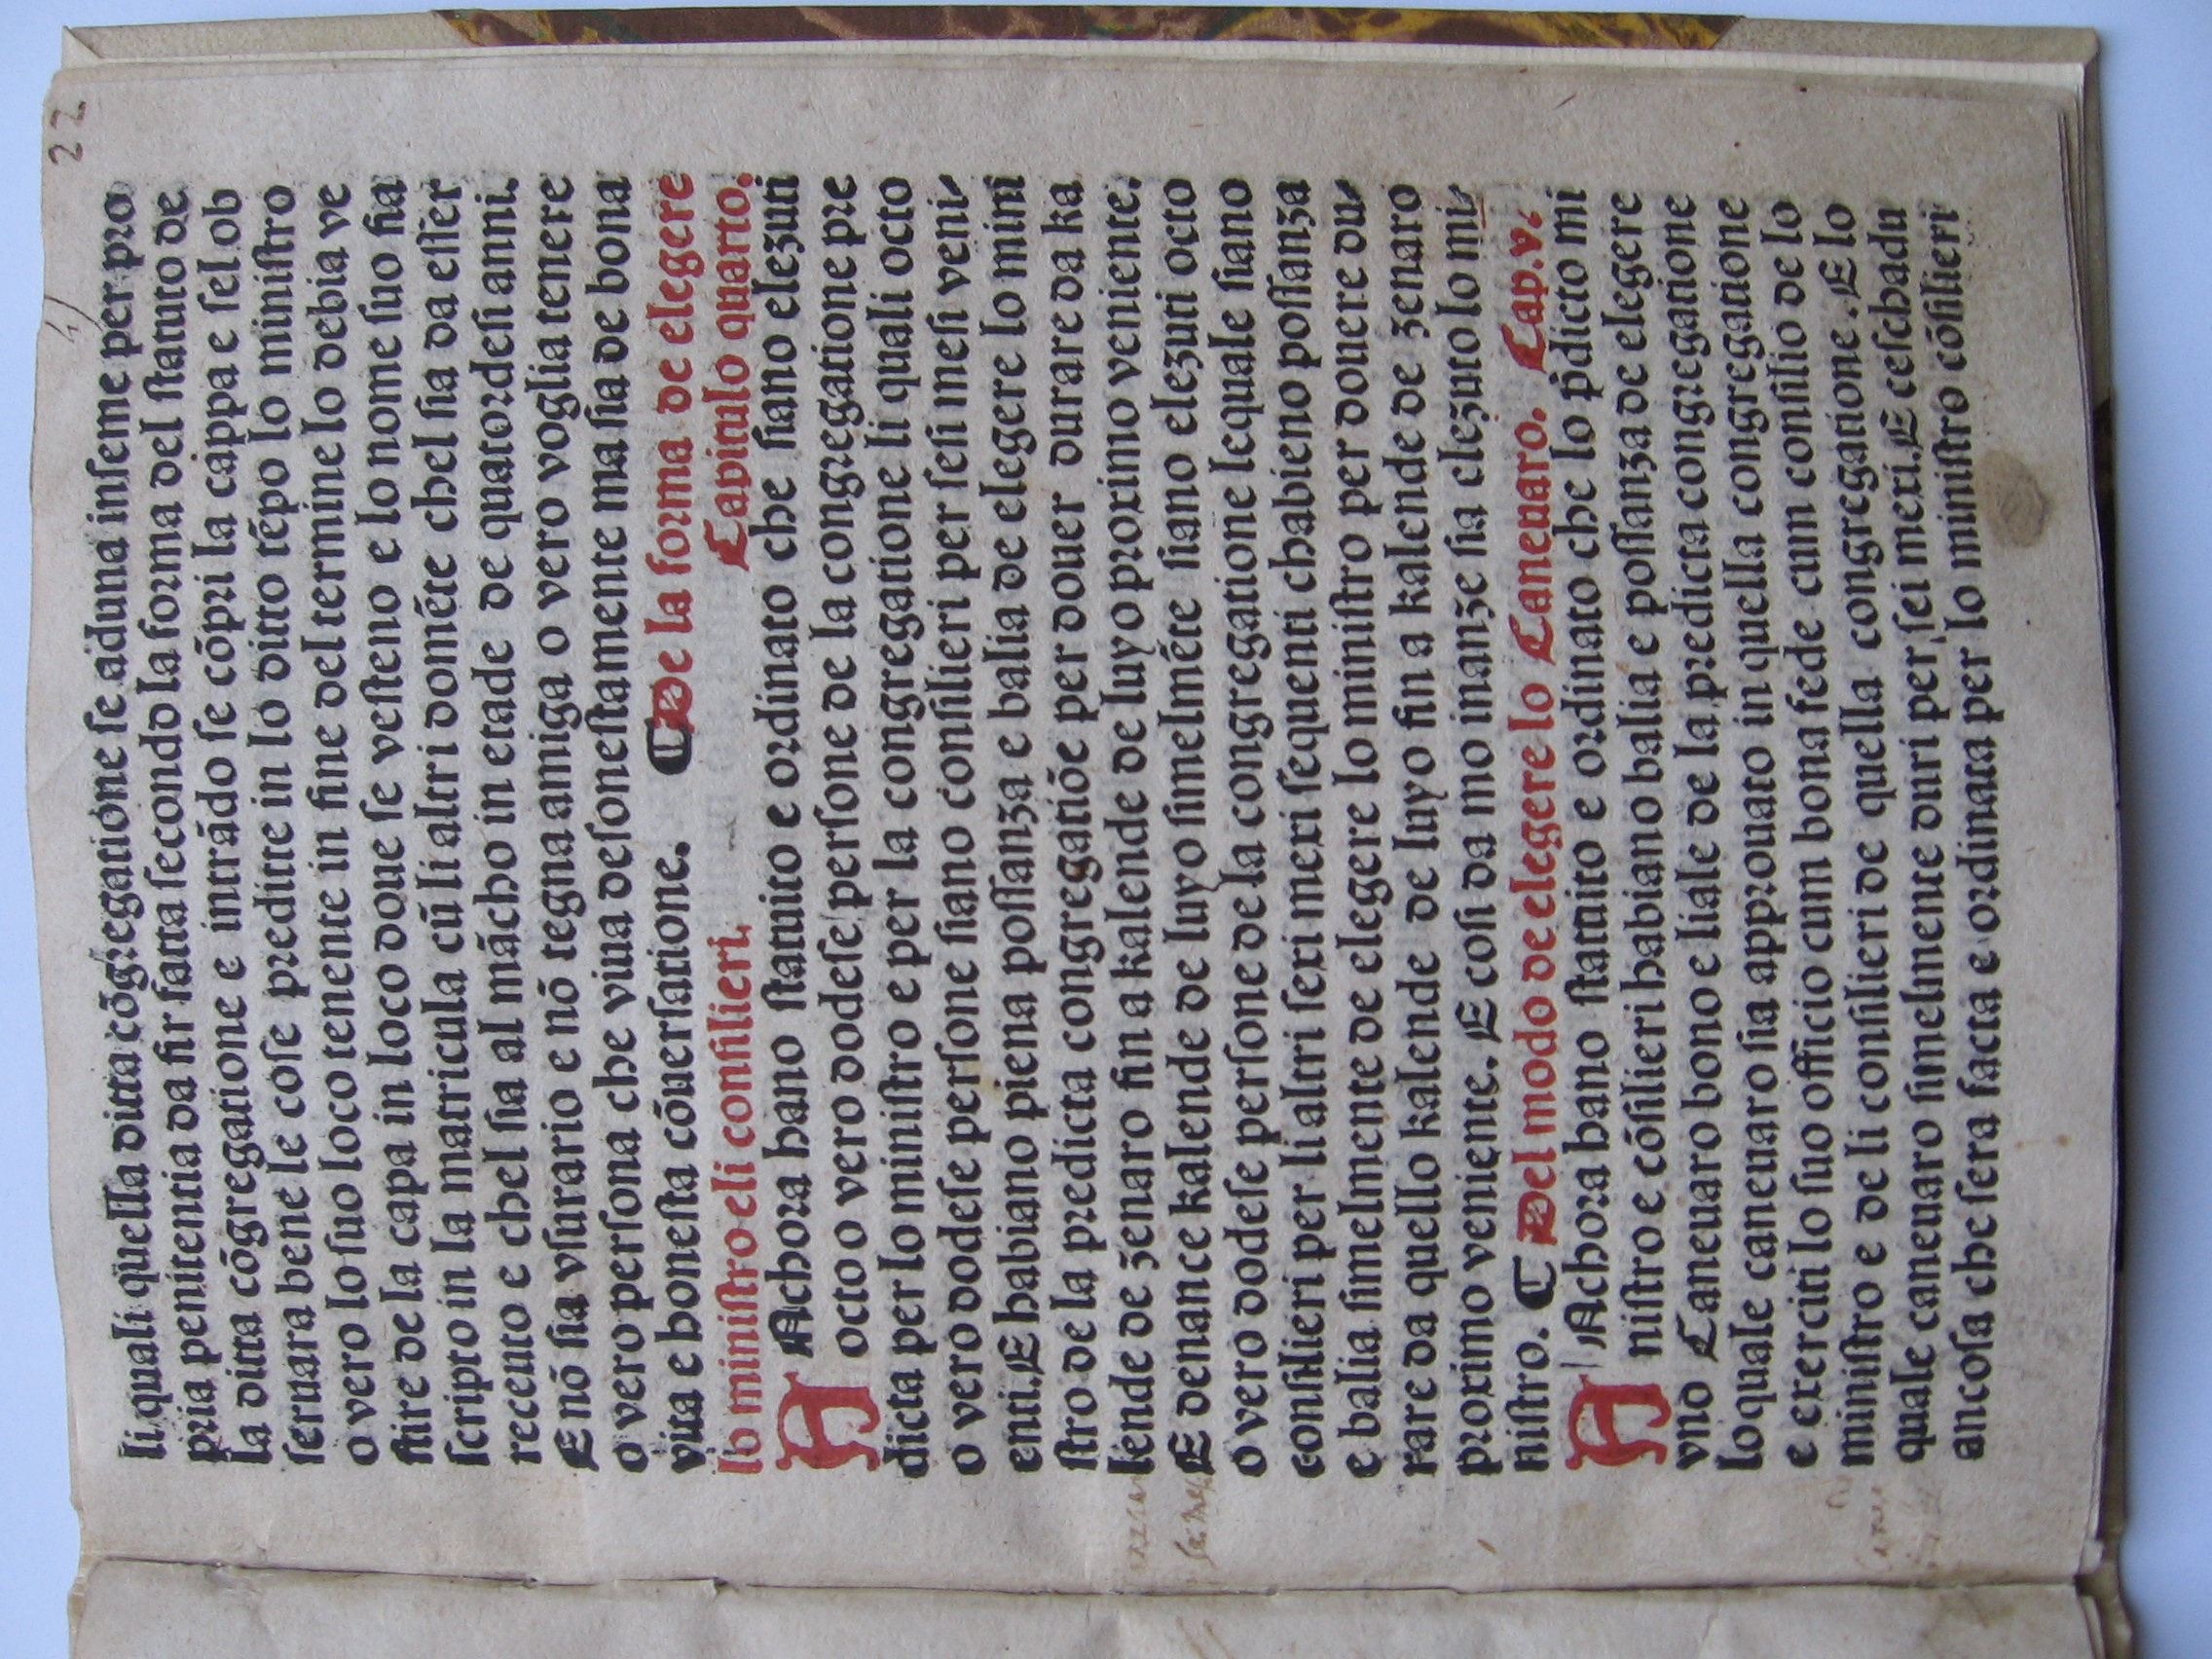 22
li quali quella ditta cõgregatione se aduna inseme per pro
pria penitentia da fir fatta secondo la forma del statuto de
la ditta cõgregatione e intrãdo se cõpri la cappa e sel ob
seruara bene le cose preditte in lo ditto tẽpo lo ministro
o vero lo suo loco tenente in fine del termine lo debia ve
stire de la capa in loco doue se vesteno e lo nome suo fia
scripto in la matricula cũ li altri domẽte chel sia da esser
receuto e chel sia al mãcho in etade de quatordesi anni.
E nõ sia vsurario e nõ tegna amiga o vero voglia tenere
o vero persona che viua desonestamente ma sia de bona
vita e honesta cõuersatione. ¶ De la forma de elegere
lo ministro e li consilieri. Capitulo quarto.
A Achora hano statuito e ordinato che siano elezuti
octo o vero dodese persone de la congregatione pre
dicta per lo ministro e per la congregatione li quali octo
o vero dodese persone siano consilieri per sesi mesi veni-
enti. E habiano piena possanza e balia de elegere lo mini
stro de la predicta congregatiõe per douer durare da ka
lende de zenaro fin a kalende de luyo proximo veniente.
E denance kalende de luyo simelmẽte siano elezuti octo
o vero dodese persone de la congregatione lequale siano
consilieri per li altri sexi mexi sequenti chabieno possanza
e balia simelmente de elegere lo ministro per douere du-
rare da quello kalende de luyo fin a kalende de zenaro
proximo veniente. E cosi da mo inanze sia elezuto lo mi-
nistro. ¶ Del modo de elegere lo Caneuaro. Cap.v.
A Achora hano statuito e ordinato che lo p̄dicto mi
nistro e cõsilieri habiano balia e possanza de elegere
vno Caneuaro bono e liale de la predicta congregatione
loquale caneuaro sia approuato in quella congregatione
e exerciti lo suo officio cum bona fede cum consilio de lo
ministro e de li consilieri de quella congregatione. E lo
quale caneuaro simelmente duri per sei mexi. E ceschadu
ancosa che sera facta e ordinata per lo ministro cõsilieri